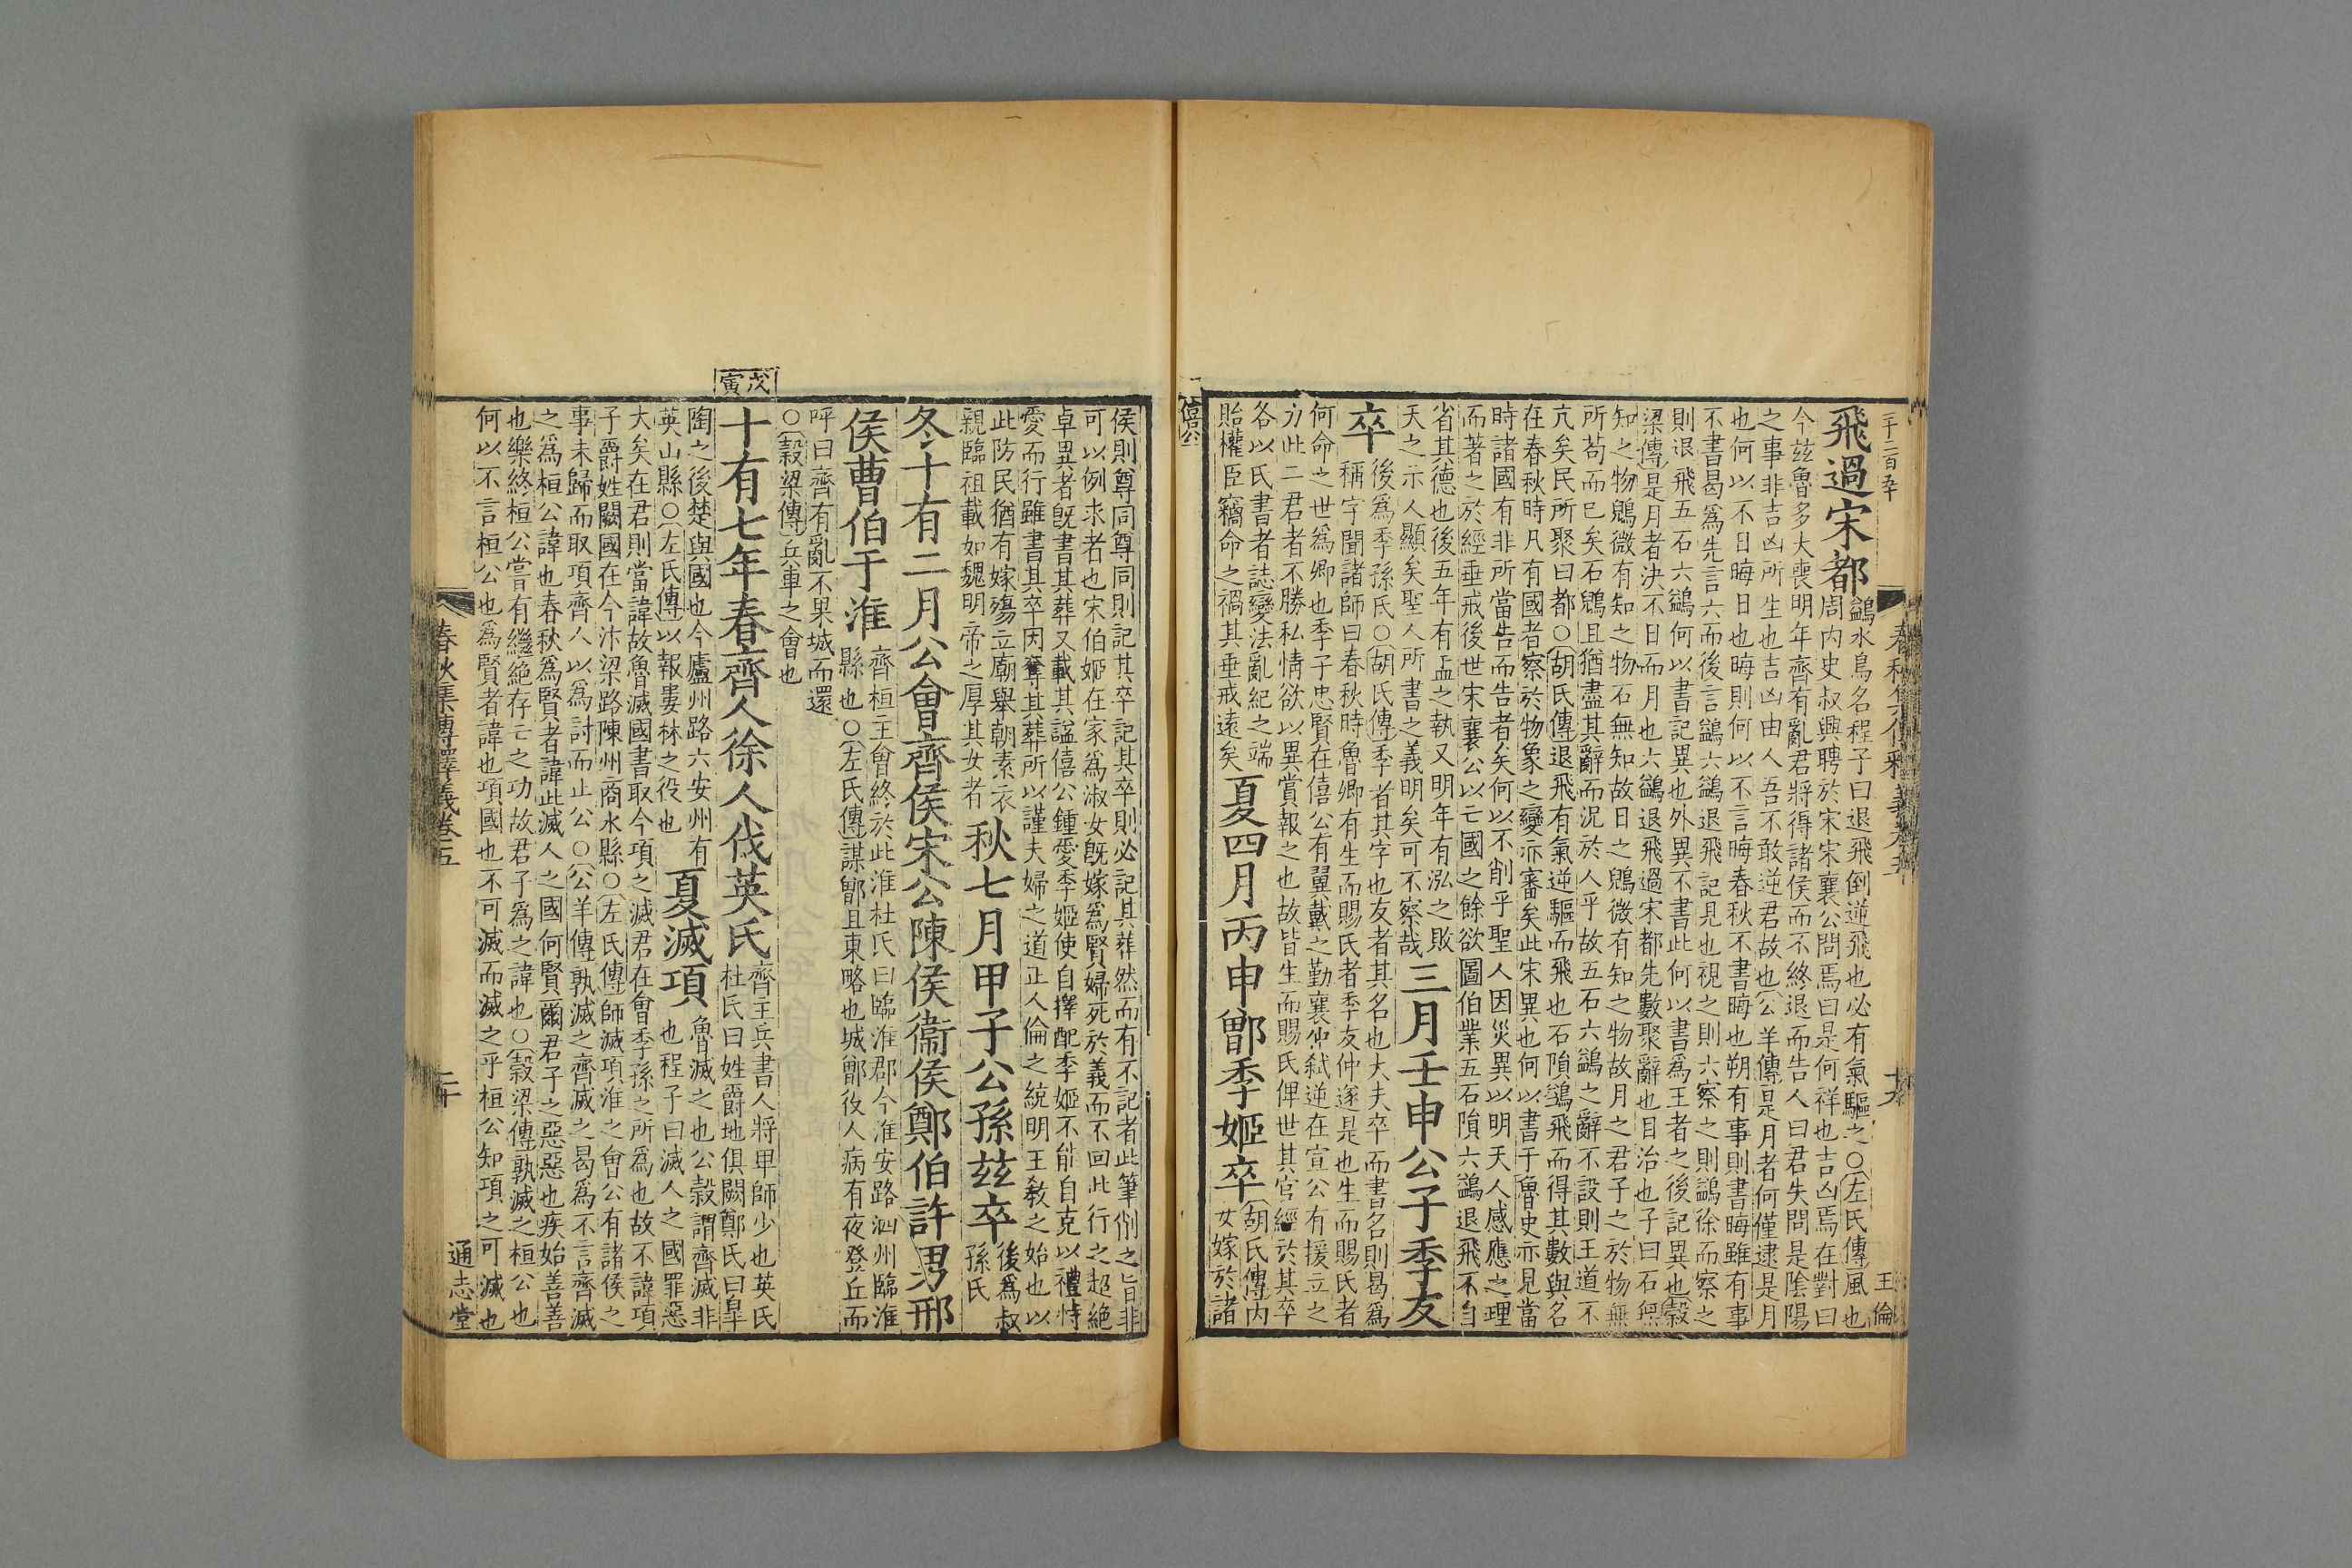 飛過宋都
鷁水鳥名程子曰退飛倒逆飛也必有氣驅之○左氏傳風也
周内史叔興聘於宋宋襄公問焉曰是何祥也吉凶焉在對曰
今茲魯多大喪明年齊有亂君將得諸侯而不終退而告人曰君失問是陰陽
之事非吉凶所生也吉凶由人吾不敢逆君故也公羊傳是月者何僅逮是月
也何以不日晦日也晦則何以不言晦春秋不書晦也朔有事則書晦雖有事
不書曷爲先言六而後言鷁六鷁退飛記見也視之則六察之則鷁徐而察之
則退飛五石六鷁何以書記異也外異不書此何以書爲王者之後記異也穀
梁傳是月者決不日而月也六鷁退飛過宋都先數聚辭也目治也子曰石無
知之物鶂微有知之物石無知故日之鶂微有知之物故月之君子之於物無
所苟而已矣石鶂且猶盡其辭而況於人乎故五石六鷁之辭不設則王道不
亢矣民所聚曰都○胡氏傳退飛有氣逆驅而飛也石隕鷁飛而得其數與名
在春秋時凡有國者察於物象之變亦審矣此宋異也何以書于魯史亦見當
時諸國有非所當告而告者矣何以不削乎聖人因災異以明天人感應之理
而著之於經垂戒後世宋襄公以亡國之餘欲圖伯業五石隕六鷁退飛不自
省其德也後五年有盂之執又明年有泓之敗
天之示人顯矣聖人所書之義明矣可不察哉
三月壬申公子季友
卒
後爲季孫氏○胡氏傳季者其字也友者其名也大夫卒而書名則曷爲
稱字聞諸師曰春秋時魯卿有生而賜氏者季友仲遂是也生而賜氏者
何命之世爲卿也季子忠賢在僖公有翼戴之勤襄仲弑逆在宣公有援立之
力此二君者不勝私情欲以異賞報之也故皆生而賜氏俾世其官經於其卒
各以氏書者誌變法亂紀之端
貽權臣竊命之禍其垂戒遠矣
夏四月丙申鄫季姬卒
胡氏傳内
女嫁於諸
僖公
春秋集傳釋義卷五
十九
王倫
侯則尊同尊同則記其卒記其卒則必記其葬然而有不記者此筆削之旨非
可以例求者也宋伯姬在家爲淑女既嫁爲賢婦死於義而不回此行之超絶
卓異者既書其葬又載其謚僖公鍾愛季姬使自擇配季姬不能自克以禮恃
愛而行雖書其卒因奪其葬所以謹夫婦之道正人倫之統明王教之始也以
此防民猶有嫁殤立廟舉朝素衣
親臨祖載如魏明帝之厚其女者
秋七月甲子公孫茲卒
後爲叔
孫氏
冬十有二月公會齊侯宋公陳侯衞侯鄭伯許男邢
侯曹伯于淮
齊桓主會終於此淮杜氏曰臨淮郡今淮安路泗州臨淮
縣也○左氏傳謀鄫且東略也城鄫役人病有夜登丘而
呼曰齊有亂不果城而還
○穀梁傳兵車之會也
戊寅
十有七年春齊人徐人伐英氏
齊主兵書人將卑師少也英氏
杜氏曰姓爵地俱闕鄭氏曰皐
陶之後楚與國也今廬州路六安州有
英山縣○左氏傳以報婁林之役也
夏滅項
魯滅之也公穀謂齊滅非
也程子曰滅人之國罪惡
大矣在君則當諱故魯滅國書取今項之滅君在會季孫之所爲也故不諱項
子爵姓闕國在今汴梁路陳州商水縣○左氏傳師滅項淮之會公有諸侯之
事未歸而取項齊人以爲討而止公○公羊傳孰滅之齊滅之曷爲不言齊滅
之爲桓公諱也春秋爲賢者諱此滅人之國何賢爾君子之惡惡也疾始善善
也樂終桓公嘗有繼絶存亡之功故君子爲之諱也○穀梁傳孰滅之桓公也
何以不言桓公也爲賢者諱也項國也不可滅而滅之乎桓公知項之可滅也
春秋集傳釋義卷五
二十
通志堂